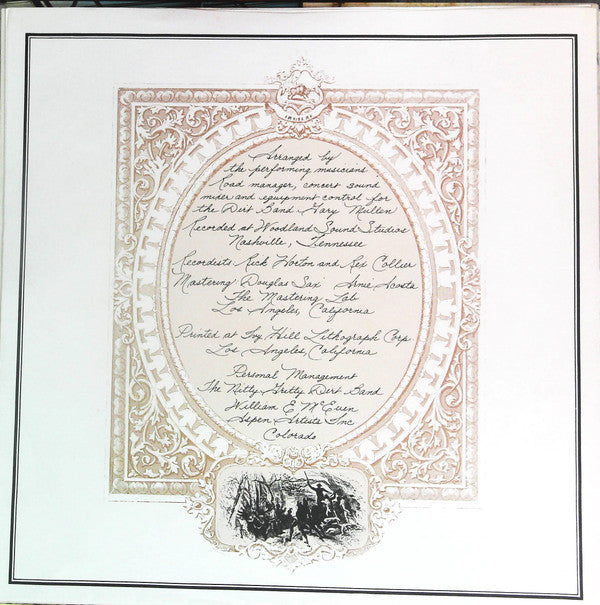 Arranged by
the performing musicians
Road manager, concert sound
mixer and equipment control for
the Dirt Band Gary Mullen
Recorded at Woodland Sound Studios
Nashville, Tennessee
Recordists. Rick Horton and Rex Collier
Mastering Douglas Sax Arnie Acosta
The Mastering Lab
Los Angeles, California
Printed at Ivy Hill Lithograph Corp
Los Angeles, California
Personal Management
The Nitty Gritty Dirt Band
William E McEuen
Aspen Artists Inc
Colorado